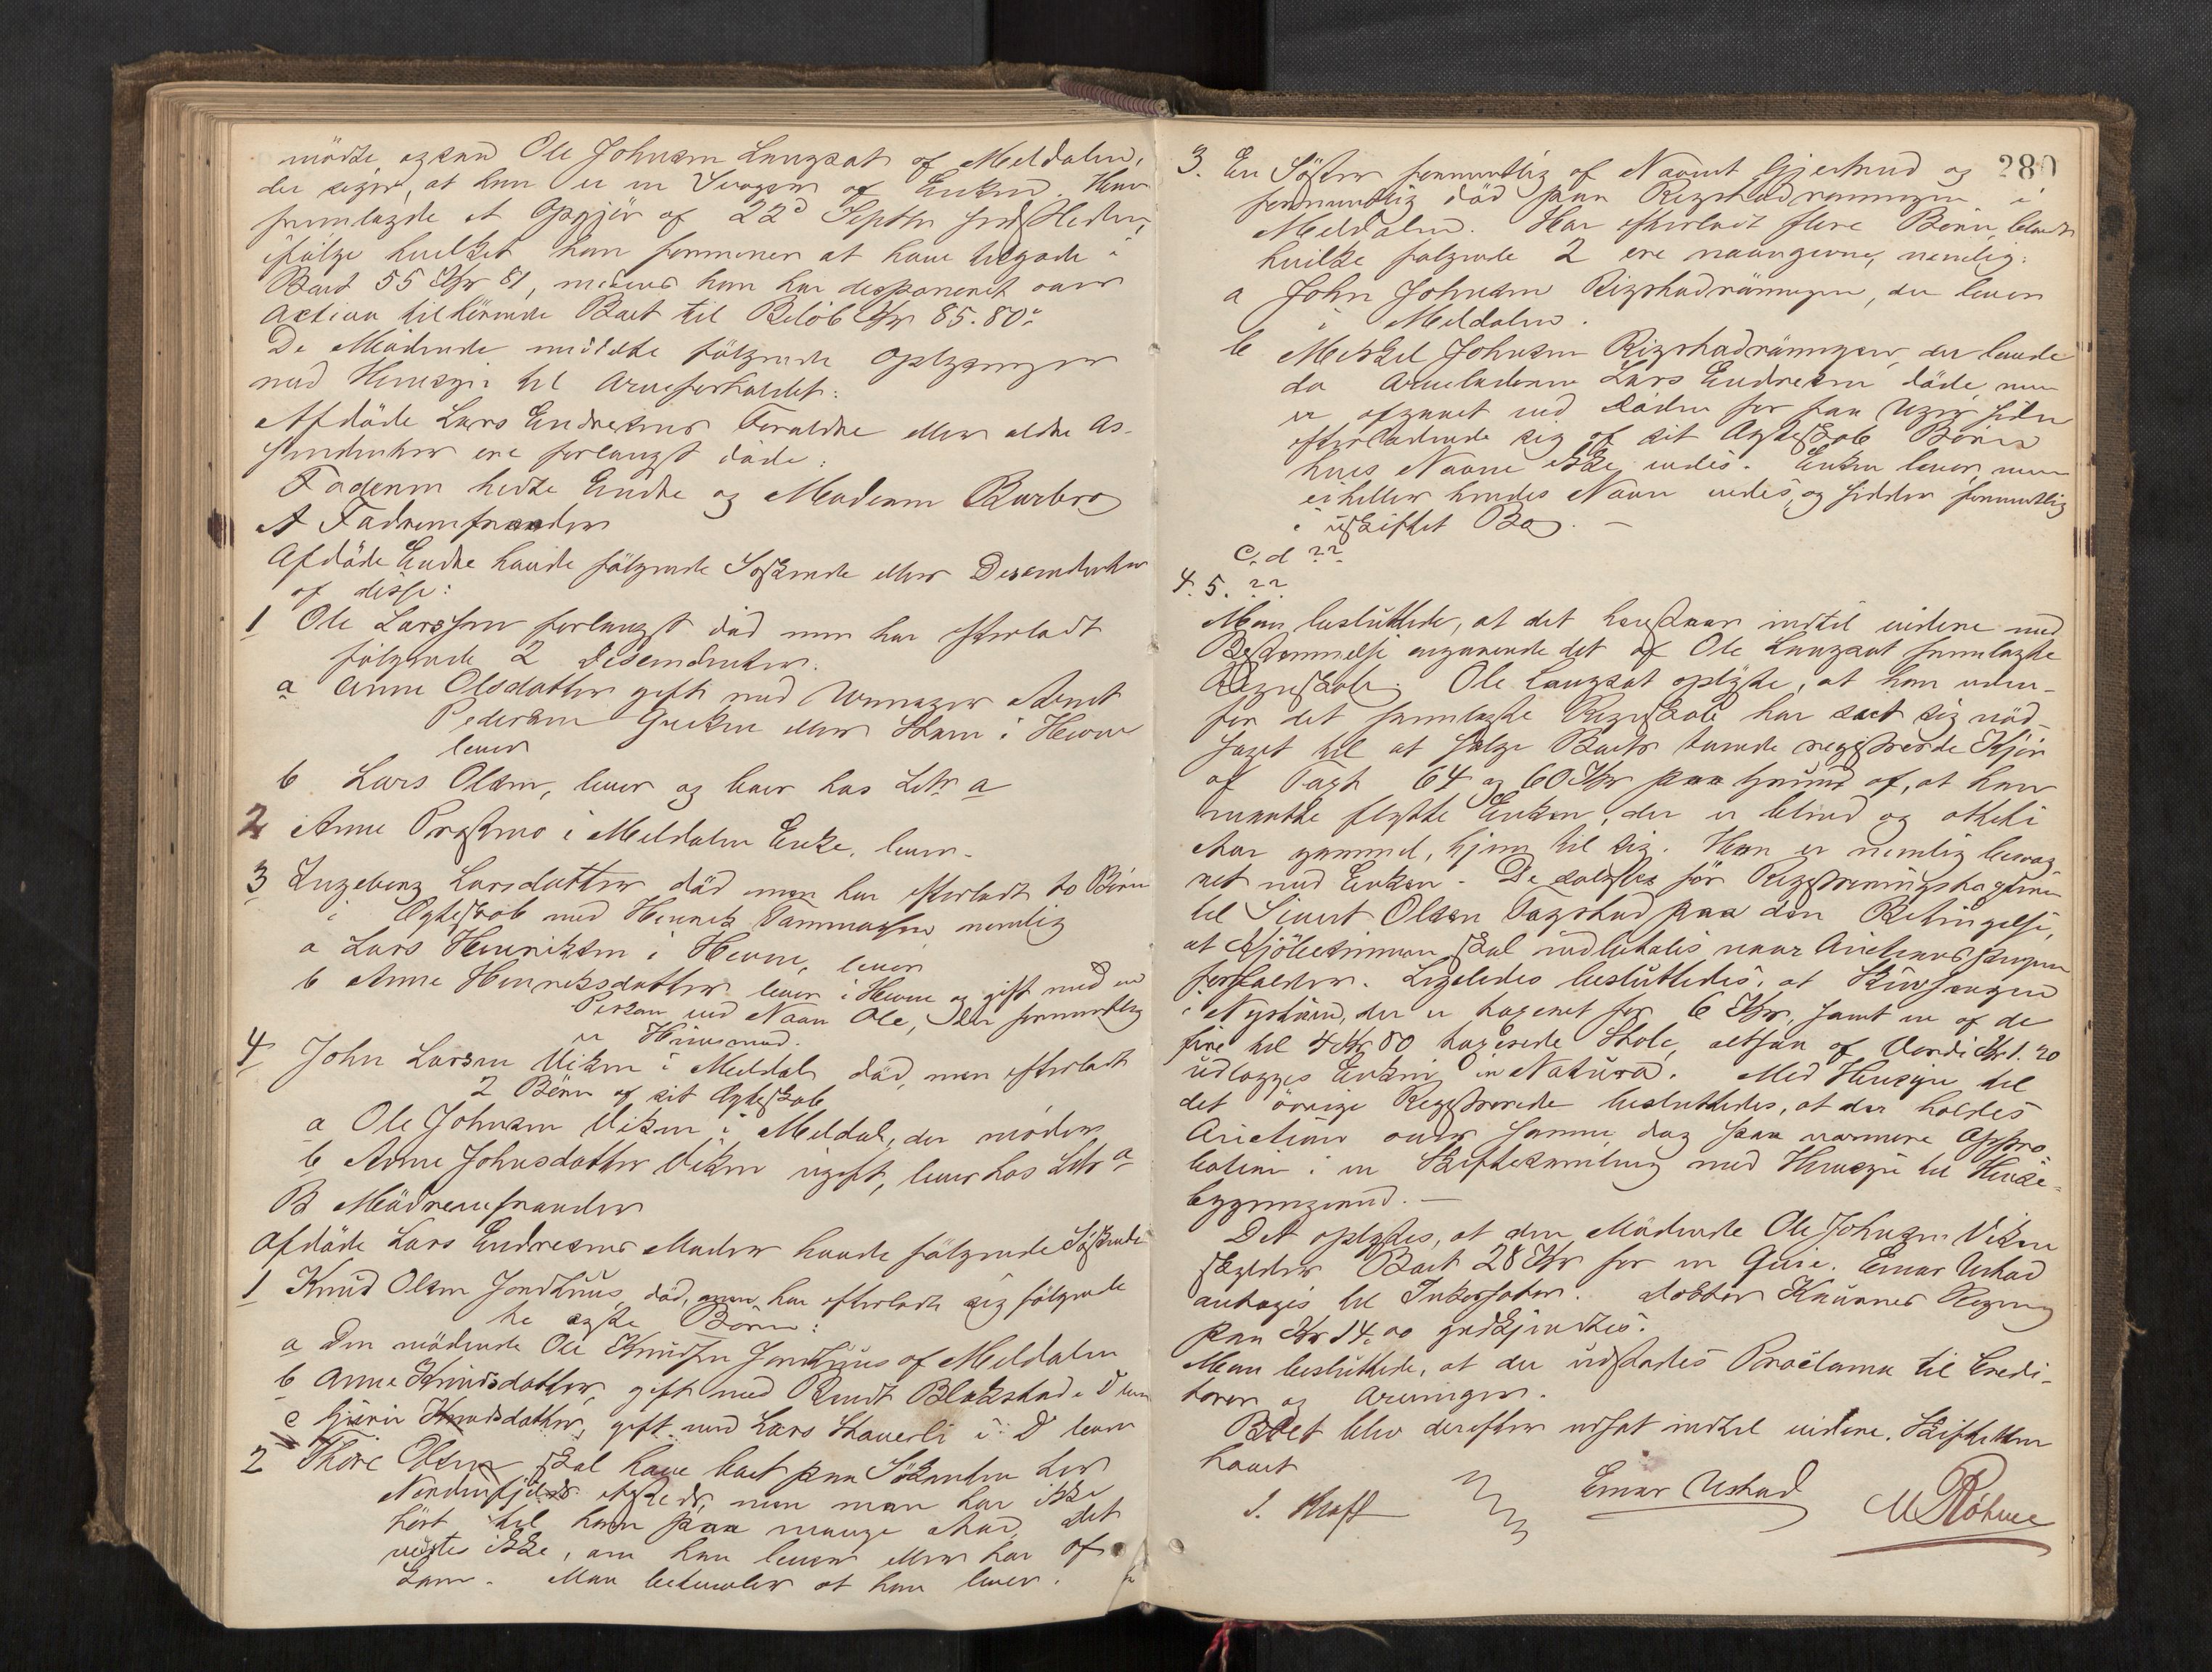 mödte ogsaa Ole Johnsen Langsat af Meldalen,
der siger, at han er en Svoger af Enken. Han
fremlagde et Opgjör af 22d Septbr
ifölge hvilket han formener at have tilgode i
Boet 55 Kr 81, medens han har disponeret over
Activa tilhörende Boet til Belöb Kr 85.80.
De Mödende meddelte fölgende Oplysninger
med Hensyn til Arveforholdet:
Afdöde Lars Endresens Forældre eller ældre As-
sendenter ere forlængst döde:
Faderen hedte Endre og Moderen Barbro
A Fædrenefrænder
Afdöde Endre havde fölgende Söskende eller Descendenter
af disse:
1 Ole Larssen forlængst död men har efterladt
fölgende 2 Descendenter.
a Anne Olsdatter gift med Arnt
Pedersen eller i Hevne
lever
b Lars Olsen, lever og boer hos Litr a
2 Anne i Meldalen Enke, lever.
3 Ingeborg Larsdatter död men har efterladt to Börn
i Ægteskab med Henrik Tommassen nemlig
a Lars Henriksen i Hevne, lever
b Anne Henriksdatter lever i Hevne og gift med en
Person ved Navn Ole, der formentlig
er Huusmand.
4 John Larsen Viken i Meldal död, men efterladt
2 Börn af sit Ægteskab
a Ole Johnsen Viken i Meldal, der möder
b Anne Johnsdatter Viken ugift, lever hos Litr a
B Mödrenefrænder
Afdöde Lars Endresens Moder havde fölgende Söskende
1 Knud Olsen Jordhuus, död, men har efterladt sig fölgende
tre ægte Börn:
a Den mödende Ole Knudsen Jordhuus af Meldalen
b Anne Knudsdatter, gift med Bendt Blokstad i D lever
c Knudsdatter, gift med Lars Staverli i D lever
2 Thore Olsen skal have boet paa
Nordenfjelds men man har ikke
hört til ham paa mange Aar. Det
vidstes ikke, om han lever eller har Af-
kom. Man at han lever.
280
3. En Söster formentlig af Navnet Gjertrud og
formentlig död paa Rigstadrönningen i
Meldalen. Har efterladt flere Börn, blandt
hvilke fölgende 2 ere navngivne, nemlig:
a John Johnsen Rigstadrönningen, der lever
i Meldalen.
b Mekkel Johnsen Rigstadrönningen, der levede
da Arveladeren Lars Endresen döde, men
er afgaaet ved Döden for faa Uger siden
efterladende sig af sit Ægteskab Börn
hvis Navne ikke vides. Enken lever, men
ei heller hendes Navn vides, og sidder formentlig
i uskiftet Bo. –
c. d ??
4. 5. ??
Man besluttede, at det henstaar indtil videre med
Bestemmelse angaaende det af Ole Langsat fremlagte
Regnskab. Ole Langsat oplyste, at han uden-
for det fremlagte Regnskab har seet sig nöd-
saget til at sælge Boets tvende registrerede Kjör
af Taxt 64 og 60 Kr paa Grund af, at han
maatte flytte Enken, der er blind og otteti
Aar gammel, hjem til sig. Han er nemlig besvog-
ret med Enken. De solgtes för Registreringsforretningen
til Sivert Olsen paa den Betingelse,
at Kjöbesummen skal indbetales naar Auctionssummen
forfalder. Ligeledes besluttedes, at
i Nystuen, der er taxeret for 6 Kr, samt en af de
fire til 4 Kr 80 taxerede Stole, altsaa af Værdi Kr 1. 20
udlægges Enken in Natura. Med Hensyn til
det övrige Registrerede besluttedes, at der holdes
Auction over samme, dog paa nærmere Appro-
bation i en Skiftesamling med Hensyn til Huse-
bygningerne. –
Det oplystes, at den Mödende Ole Johnsen Viken
skylder Boet 28 Kr for en Qvie. Einar Ustad
antoges til Inkassator. Doktor Regning
paa Kr 14.00 godkjendtes.
Man besluttede, at der udstædes Proclama til Credi-
torer og Arvinger.
Boet blev derefter udsat indtil videre. Skifteretten
hævet
Einar Ustad